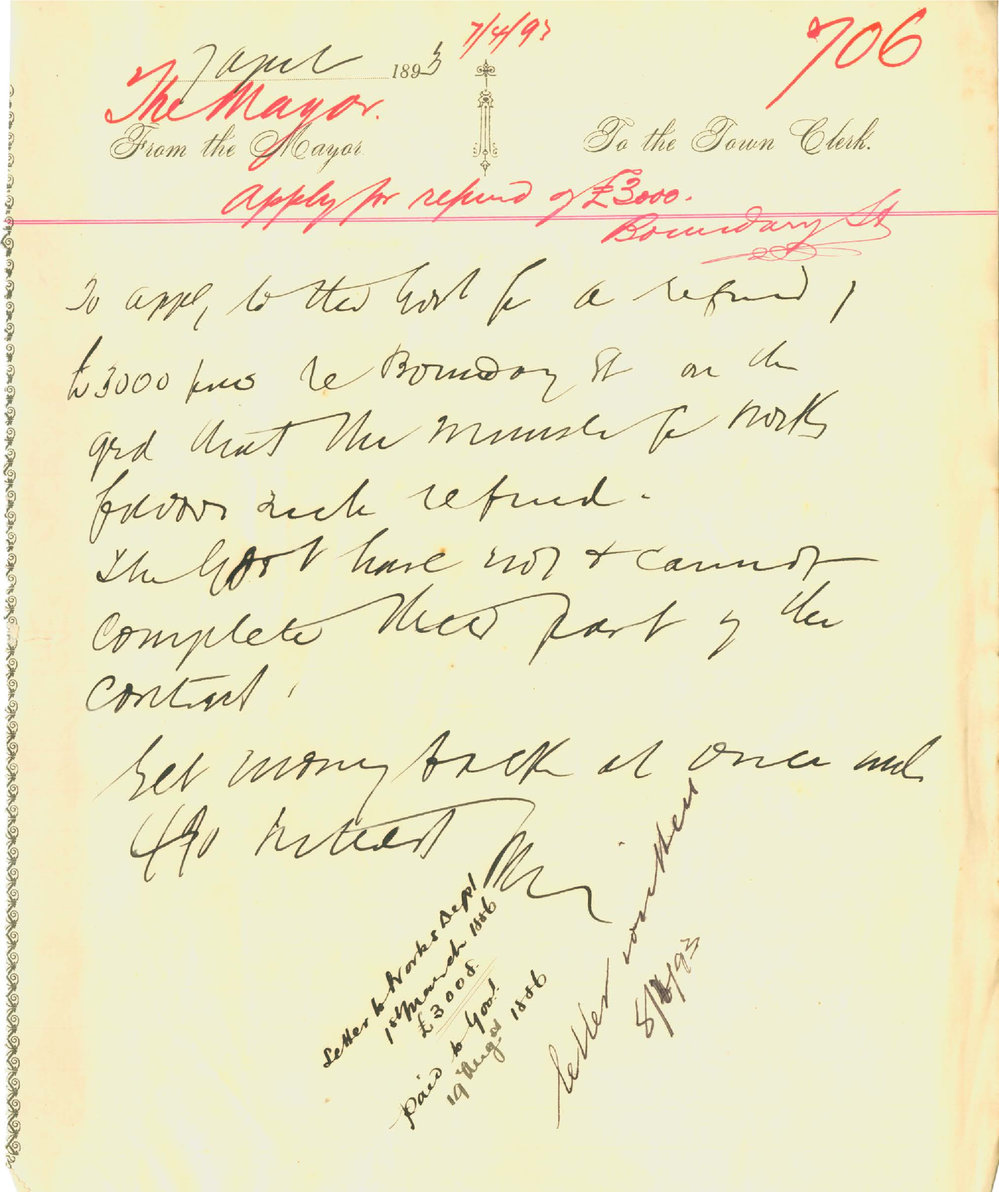 7/4/93
706
7 April 1893
The Mayor.
From the Mayor
To the Town Clerk.
Apply for refund of £3000.
Boundary St
To apply to the Govt for a refund of
£3000 re Boundary St on the
grd that the Minister for Works
favors such refund.
The Govt have not & cannot
complete their part of the
contract.
Get money back at once and
4% interest
Letter to Works Dept
1st March 1886
£3008.
paid to Govt
19 Augst 1886
letter written
8/4/93